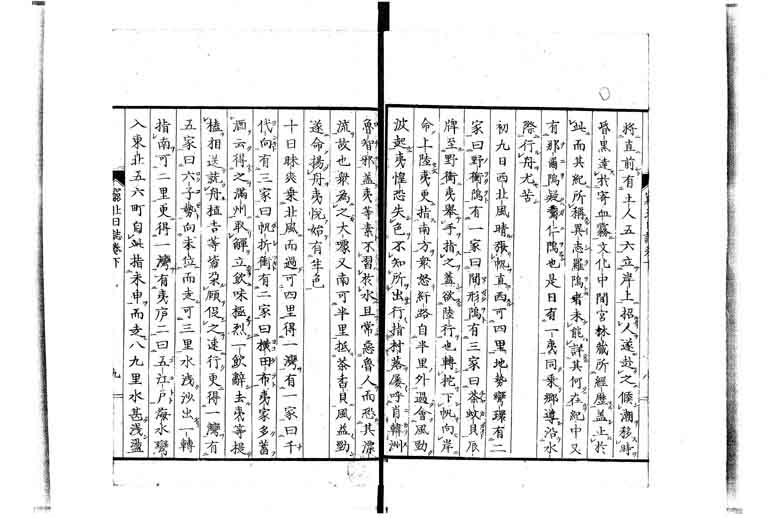 將直前有土人五六立岸上招人遂赴之候潮移時
昏黒達我寄血霧文化中間宮林藏所經歴蓋止於
此而其紀所稱異志羅隝者未能詳其何在紀中又
有那爾隝疑齊仁隝也是日有一夷同乘郷導沿水
際行舟尤苦
初九日西北風晴張帆直西可四里地勢彎環有二
家曰野衝隝有一家曰間形隝有三家曰茶蚊貝辰
牌至野衝夷擧手指之蓋欲陸行也轉柁下帆向岸
命上陸夷更指南方衆怒紆路自半里外過會風勁
波起夷惶恐失色不知所出行指村落屡呼肖韓洲
魯智邪蓋夷等素不習於水且常惡魯人而恐其漂
流故也衆為之大噱又南可半里抵茶杳貝風益勁
遂命揚舟夷恱始有生色
十日昧爽乗北風而過可四里得一灣有一家曰千
代向有三家曰帆折衝有二家曰橫田布夷家多蓄
酒云得之滿州取觶立飲味極烈一飲辭去夷等提
榼相送就舟榼吉等皆朶頤促之速行更得一灣有
五家曰六子勢向未位而走可三里水浅沙出一轉
指南可二里更得一灣有夷庐二曰五江戸海水彎
入東北五六町自此指未申而走八九里水甚浅盪
北日誌卷下
九